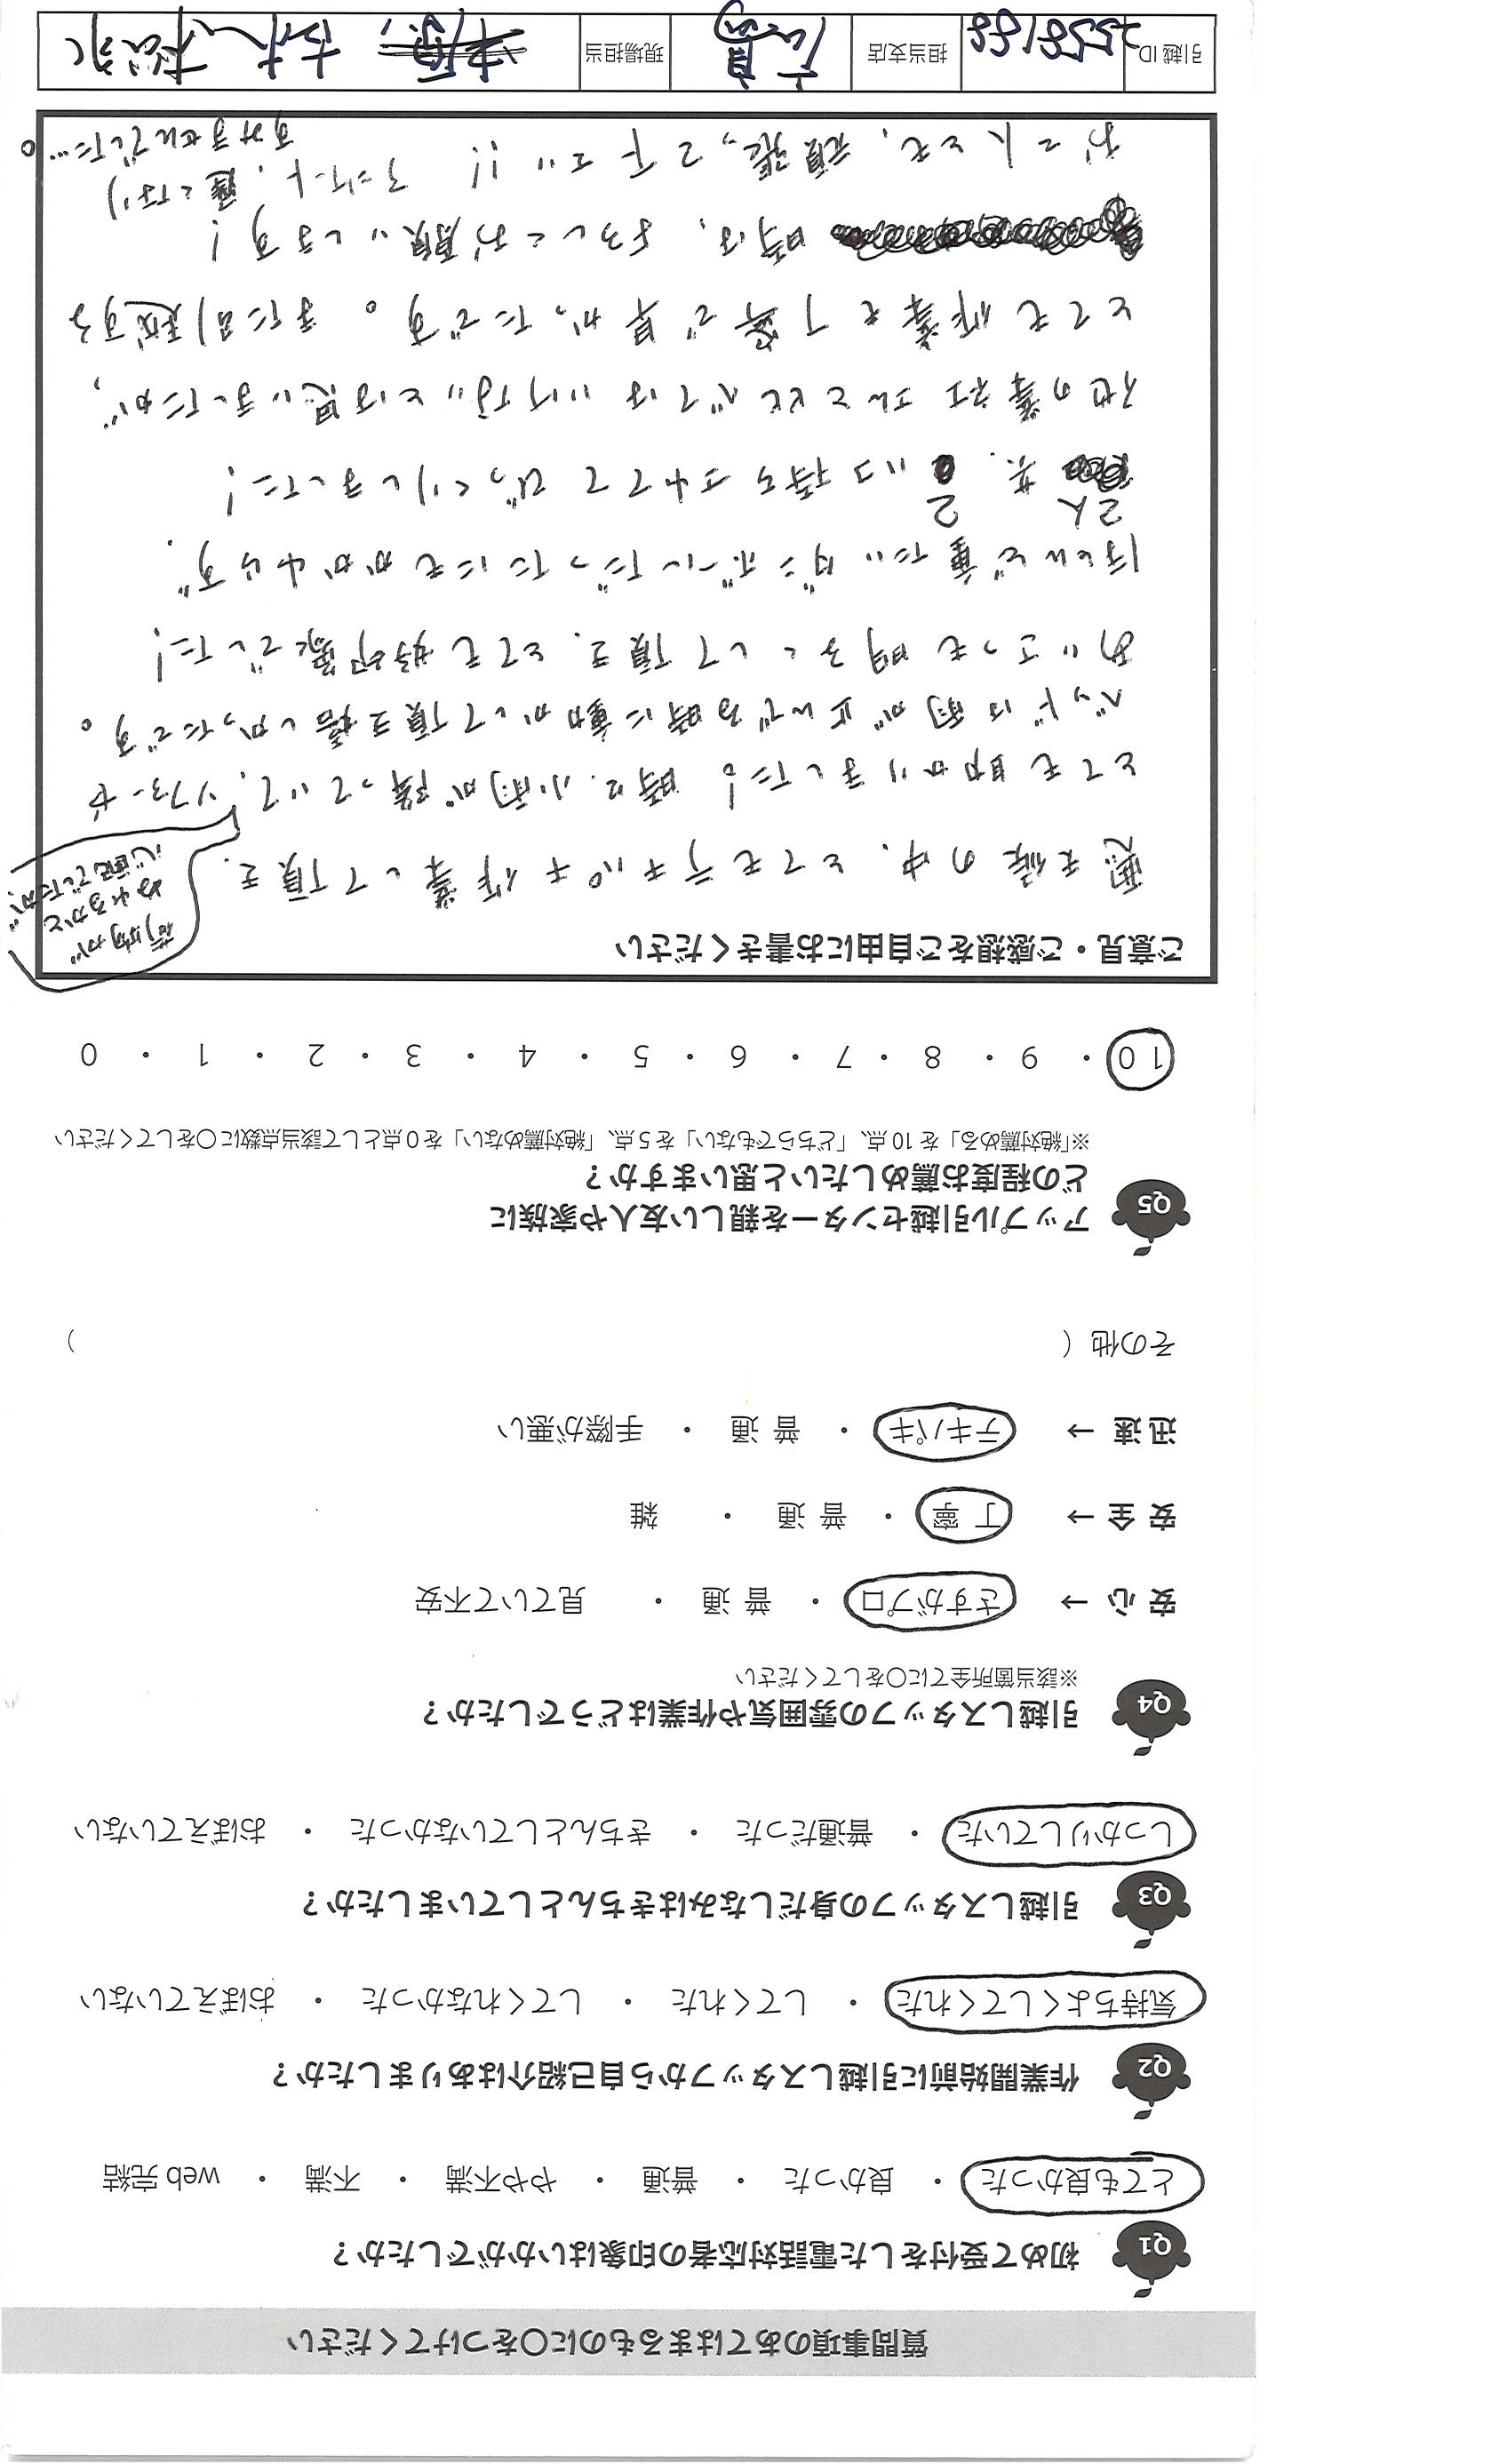 質問事項のあてはまるものに〇をつけてください
Q1 初めて受付をした電話対応者の印象はいかがでしたか？
とても良かった ・ 良かった ・ 普通 ・ やや不満 ・ 不満 ・ web 完結
Q2 作業開始前に引越しスタッフから自己紹介はありましたか？
気持ちよくしてくれた ・ してくれた ・ してくれなかった ・ おぼえていない
Q3 引越しスタッフの身だしなみはきちんとしていましたか？
しっかりしていた ・ 普通だった ・ きちんとしていなかった ・ おぼえていない
Q4 引越しスタッフの雰囲気や作業はどうでしたか？
※該当箇所全てに〇をしてください
安 心 → さすがプロ ・ 普 通 ・ 見ていて不安
安 全 → 丁 寧 ・ 普 通 ・ 雑
迅 速 → テキパキ ・ 普 通 ・ 手際が悪い
その他（ ）
Q5 アップル引越センターを親しい友人や家族に
どの程度お薦めしたいと思いますか？
※「絶対薦める」を 10 点、「どちらでもない」を 5 点、「絶対薦めない」を 0 点として該当点数に〇をしてください
10 ・ 9 ・ 8 ・ 7 ・ 6 ・ 5 ・ 4 ・ 3 ・ 2 ・ 1 ・ 0
ご意見・ご感想をご自由にお書きください
悪天候の中、とてもテキパキ作業して頂き、
荷物が
ぬれるかと
心配でしたが
とても助かりました！ 時に小雨が降っていて、ソファーや
ベッドは雨が止んでる時に動かして頂き嬉しかったです。
あいさつも明るくして頂き、とても好印象でした！
ほとんど重たいダンボールだったにもかかわらず、
2人共、2コ持ちされててびっくりしました！
他の業社さんとヒとべてはいけないとは思いましたが、
とても作業も丁寧で早かったです。 また引越する
時は、よろしくお願いします！
お二人とも、頑張って下さい!! アンケート、遅くなり
すみませんでした…。
引越 ID 25581
担当支店
現場担当 松永